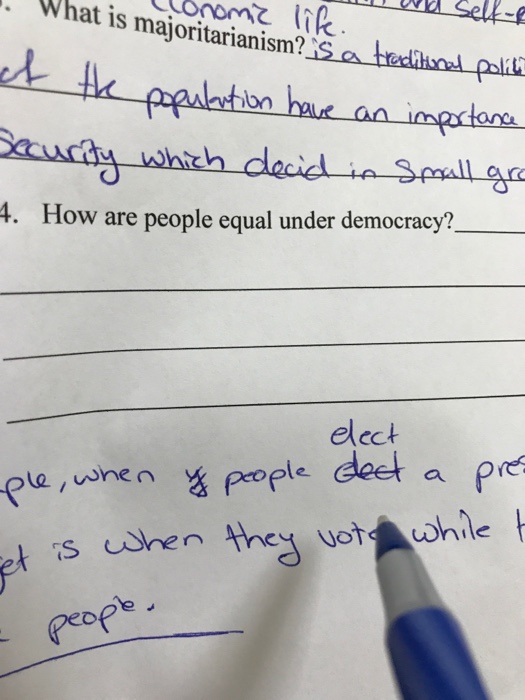 economic life. and self-
What is majoritarianism? is a traditional politi
of the population have an importance
Security which decid in small gro
4. How are people equal under democracy?
ple, when people elect a pres
elect
et is when they vote while t
people.